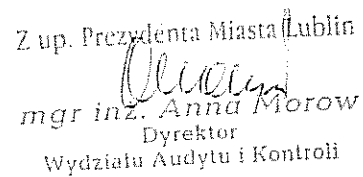 Z up. Prezydenta Miasta Lublin
mgr inż. Anna Morow
Dyrektor
Wydziału Audytu i Kontroli